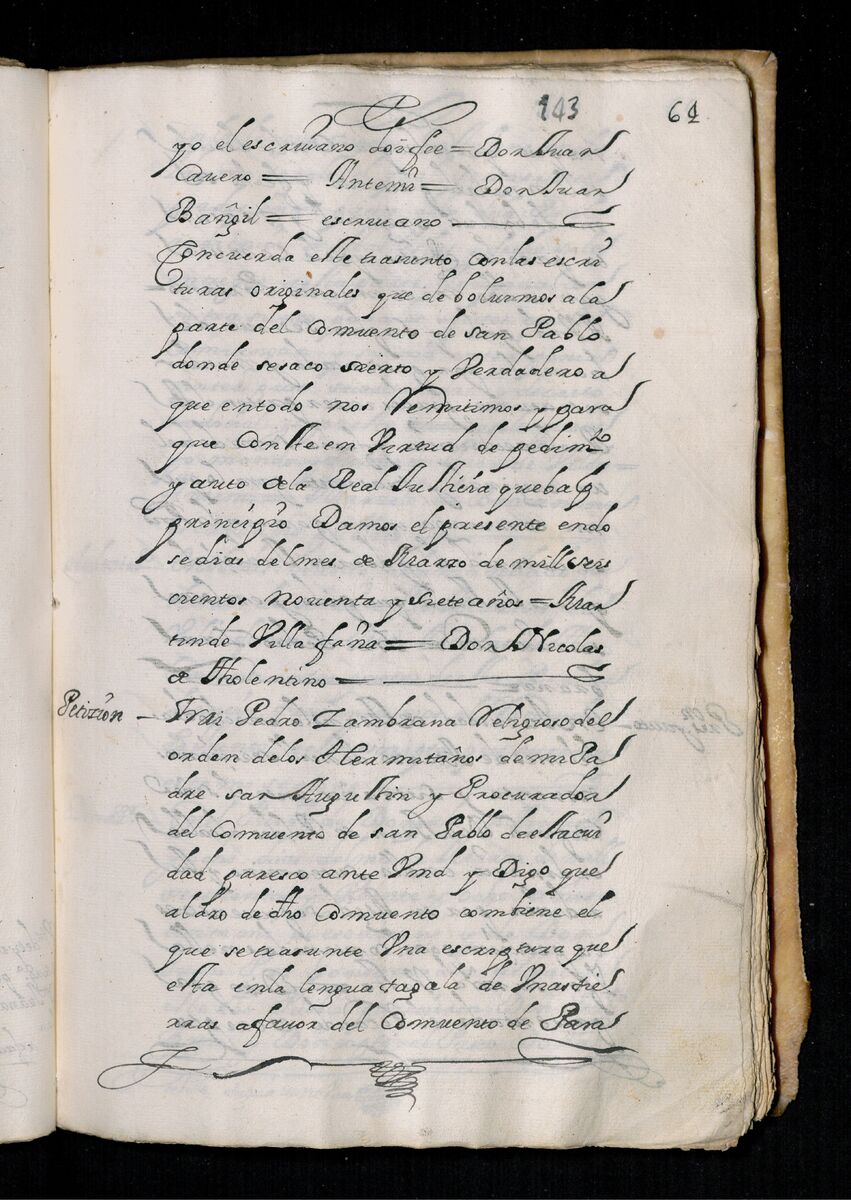 143
64
yo el escriuano doi fee = Don Juan
Cauero = Antemi = Don Juan
Bangil = escriuano
Concuerda este trasunto con las escri
turas originales que de boluimos a la
parte del Comuento de san Pablo
donde se saco sierto y Verdadero a
que entodo nos Remitimos y para
que Conste en Virtud de pedimto
y auto dela Real Justicia que ba lp
principio Damos el presente en do
se dias del mes de Marzo de mill seis
cientos Noventa y siete años = Mar
tin de Villa faña = Don Nicolas
de Tholentino =
Peticion - Frai Pedro Zambrana Religioso del
orden delos Hermitaños de mi Pa
dre san Augustin y Procurador
del Comuento de san Pablo de esta ciu
dad paresco ante Vmd y Digo que
al dro de dho Comuento combiene el
que se trasunte Vna escriptura que
esta en la lengua tagala de Vnas tie
rras a fauor del Comuento de Para